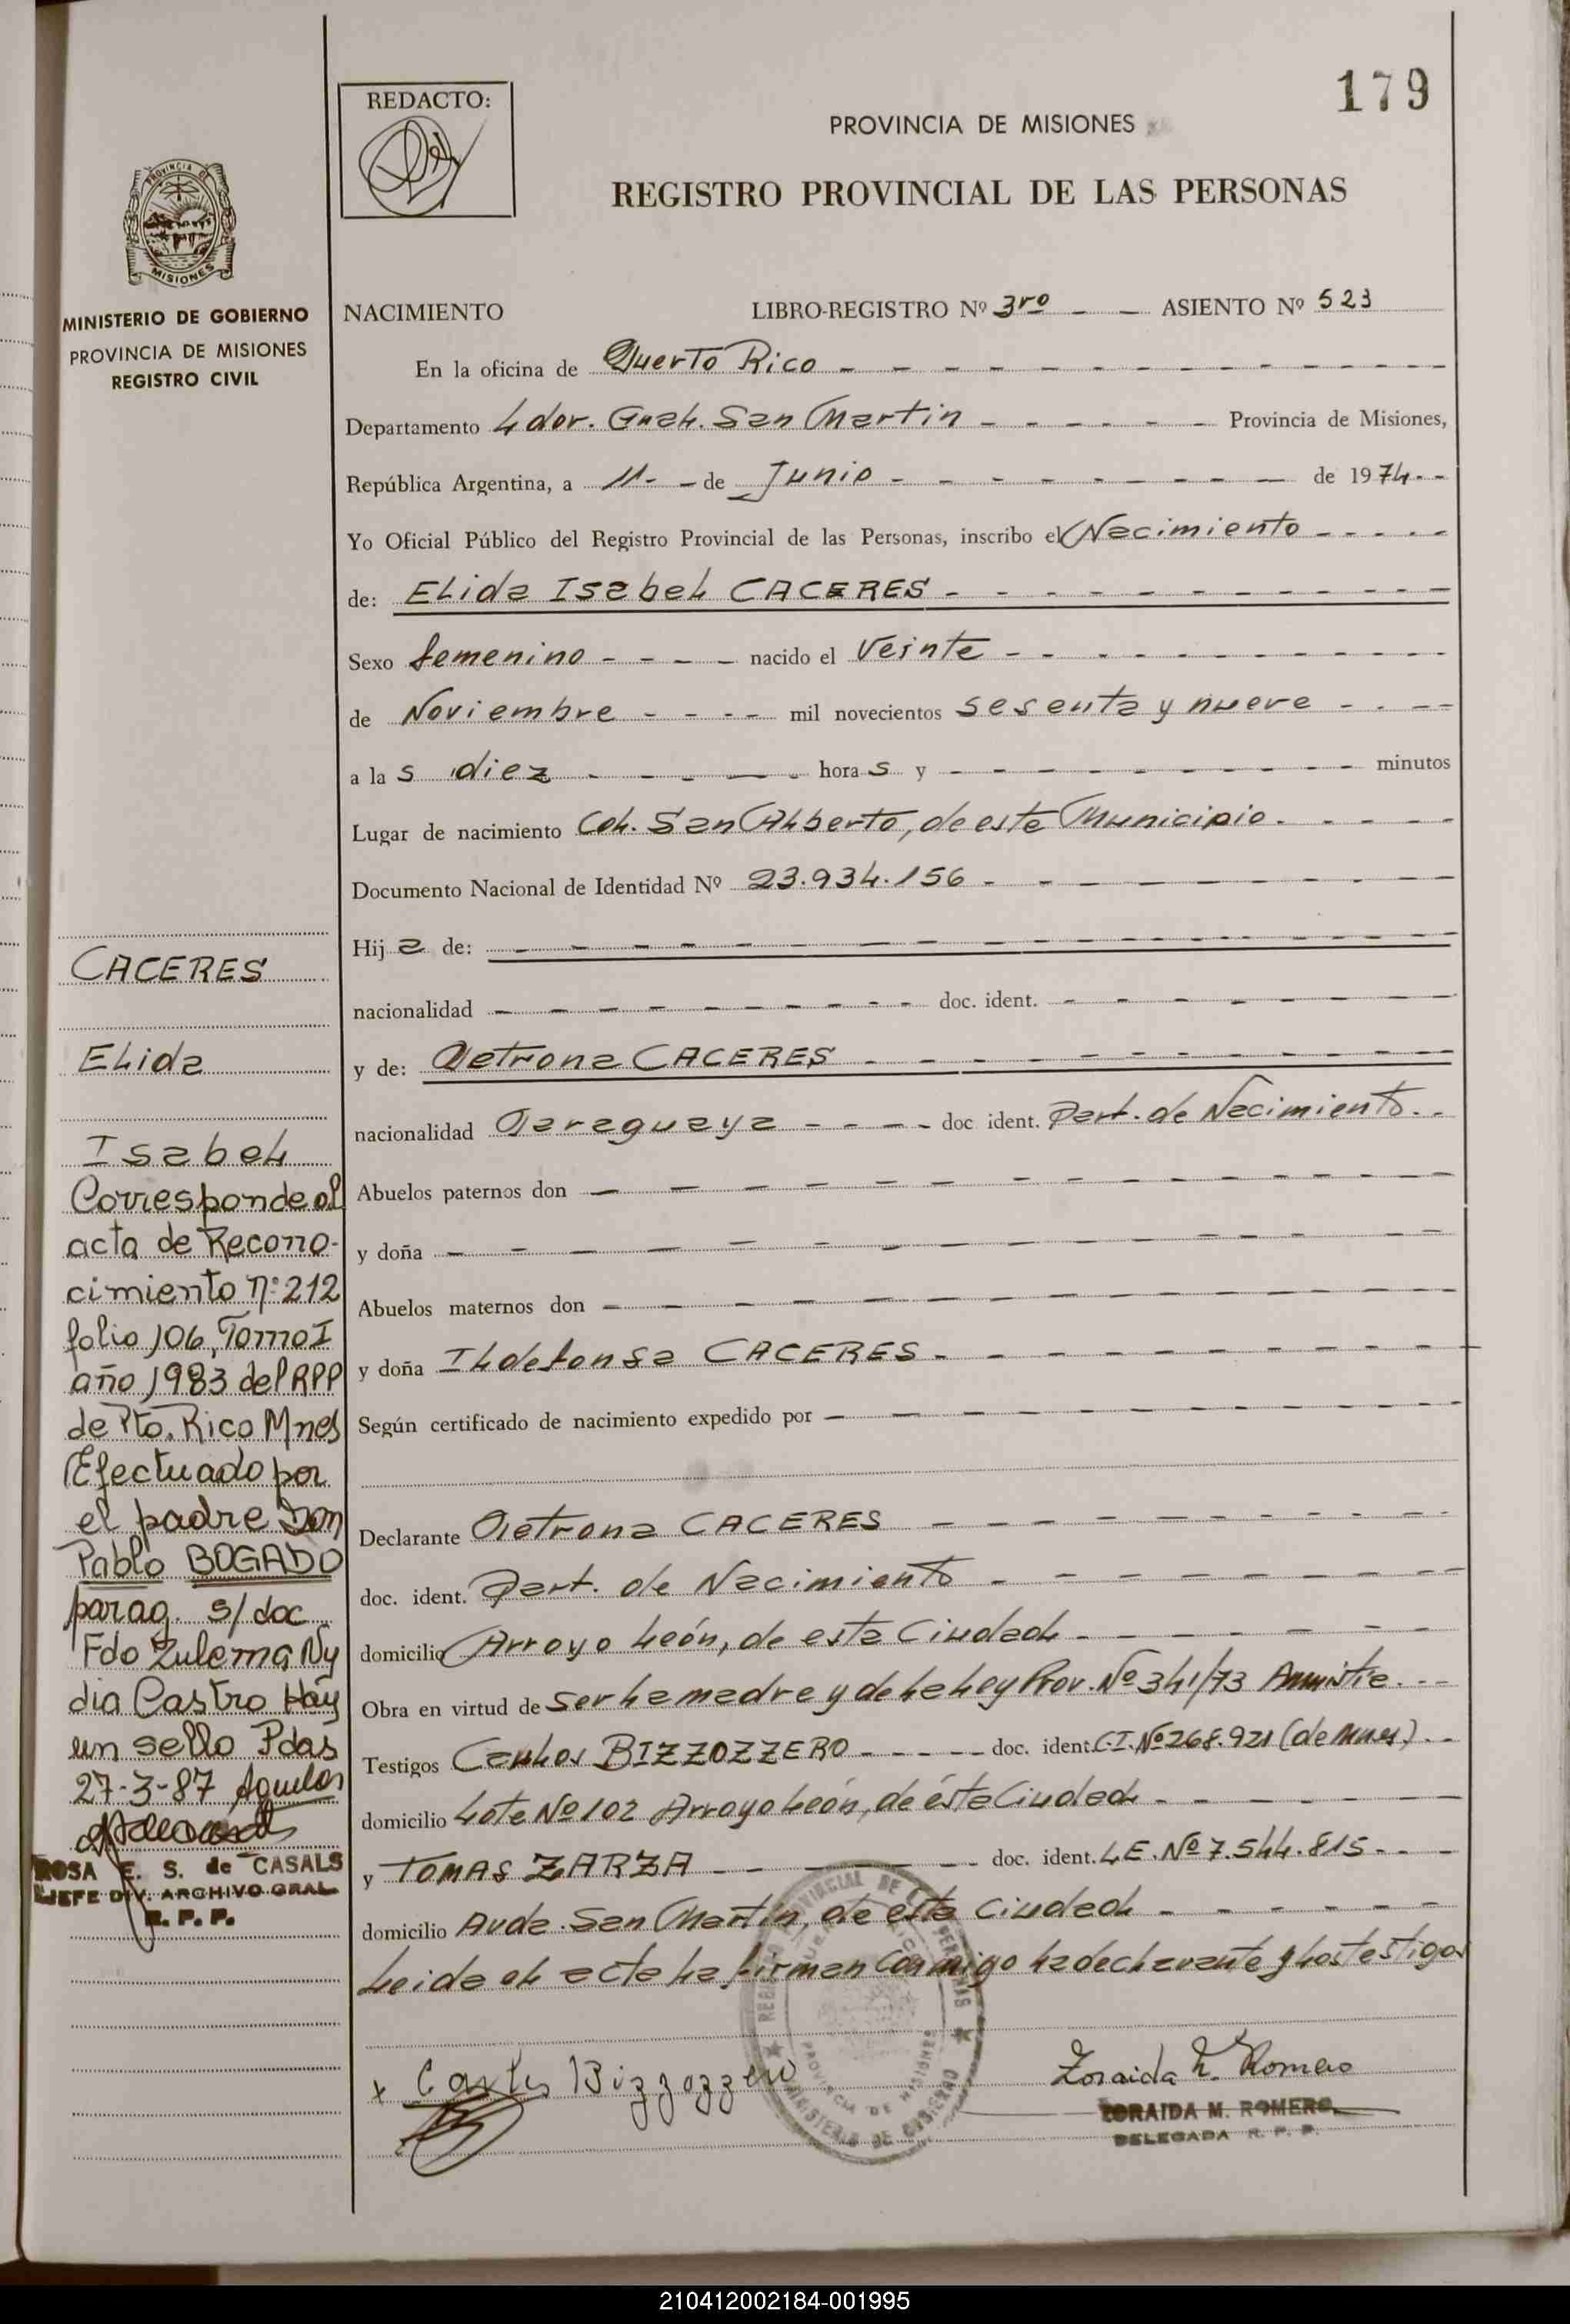 179
REDACTO:
PROVINCIA DE MISIONES
REGISTRO PROVINCIAL DE LAS PERSONAS
PROVINCIA DE
MISIONES
MINISTERIO DE GOBIERNO
PROVINCIA DE MISIONES
REGISTRO CIVIL
NACIMIENTO LIBRO-REGISTRO Nº 3ro - - ASIENTO Nº 523
En la oficina de Puerto Rico
Departamento Ldor. Gral. San Martin Provincia de Misiones,
República Argentina, a 11 de Junio de 1974
Yo Oficial Público del Registro Provincial de las Personas, inscribo el Nacimiento
de: ELida IsabeL CACERES
Sexo femenino nacido el Veinte
de Noviembre mil novecientos sesenta y nueve
a la s diez hora s y minutos
Lugar de nacimiento Col. San Alberto, de este Municipio.
Documento Nacional de Identidad Nº 23.934.156
Hij a de:
nacionalidad doc. ident.
y de: Petrona CACERES
nacionalidad Paraguaya doc ident. Part. de Nacimiento.
Abuelos paternos don
y doña
Abuelos maternos don
y doña Ildefonsa CACERES
Según certificado de nacimiento expedido por
Declarante Petrona CACERES
doc. ident. Part. de Nacimiento
domicilio Arroyo León, de esta Ciudad
Obra en virtud de ser la madre y de la Ley Prov. Nº 341/73 Amnistie.
Testigos Carlos BIZZOZZERO doc. ident. C.I. Nº 268.921 (de Mnes)
domicilio Lote Nº 102 Arroyo León, de ésta Ciudad
y TOMAS ZARZA doc. ident. L.E. Nº 7.544.815
domicilio Avda. San Martín, de esta Ciudad
Leida el acta la firman conmigo la declarante y los testigos
Carlos Bizzozzero
Zoraida M. Romero
ZORAIDA M. ROMERO
DELEGADA R. P. P.
REGISTRO PROVINCIAL DE LAS PERSONAS
PROVINCIA DE MISIONES
MINISTERIO DE GOBIERNO
CACERES
ELida
IsabeL
Corresponde al
acta de Recono-
cimiento nº 212
folio 106, Tomo I
año 1983 del RPP
de Pto. Rico Mnes
Efectuado por
el padre Don
Pablo BOGADO
parag. s/doc
Fdo Zulema Ny
dia Castro Hay
un sello Pdas
27-3-87
ROSA E. S. de CASALS
JEFE DIV. ARCHIVO GRAL.
R. P. P.
210412002184-001995